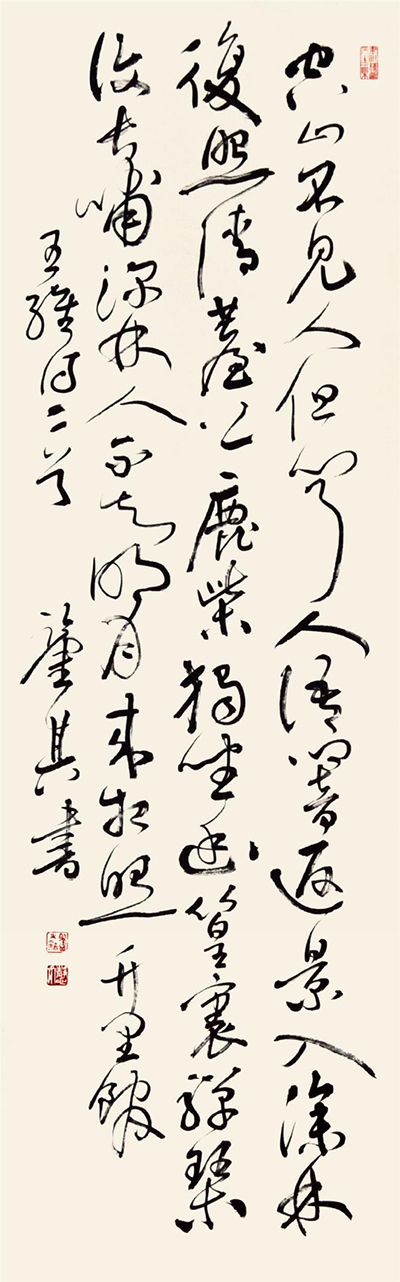 空山不見人但聞人語響返景入深林
復照清薹上鹿柴獨坐幽篁裏彈琴
復長嘯深林人不知明月來相照竹里館
王維詩二首 其書